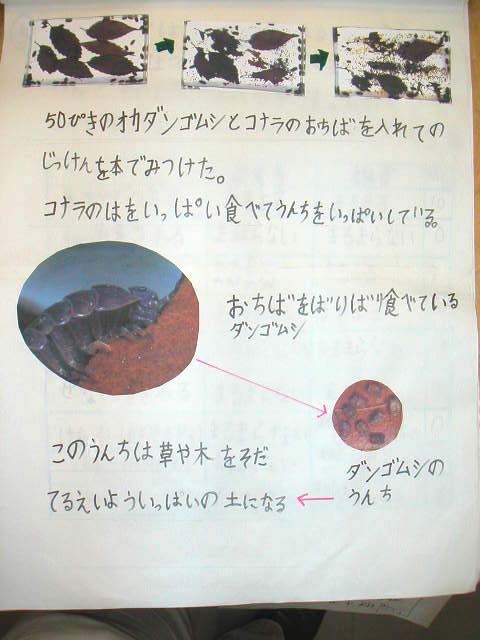 50ぴきのオカダンゴムシとコナラのおちばを入れての
じっけんを本でみつけた。
コナラのはをいっぱい食べてうんちをいっぱいしている。
おちばをばりばり食べている
ダンゴムシ
このうんちは草や木をそだ
てるえいよういっぱいの土になる
ダンゴムシの
うんち